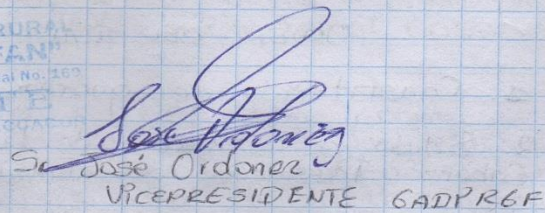 RURAL
No. 169
José Ordonez
Sr José Ordonez
VICEPRESIDENTE GADPRGF